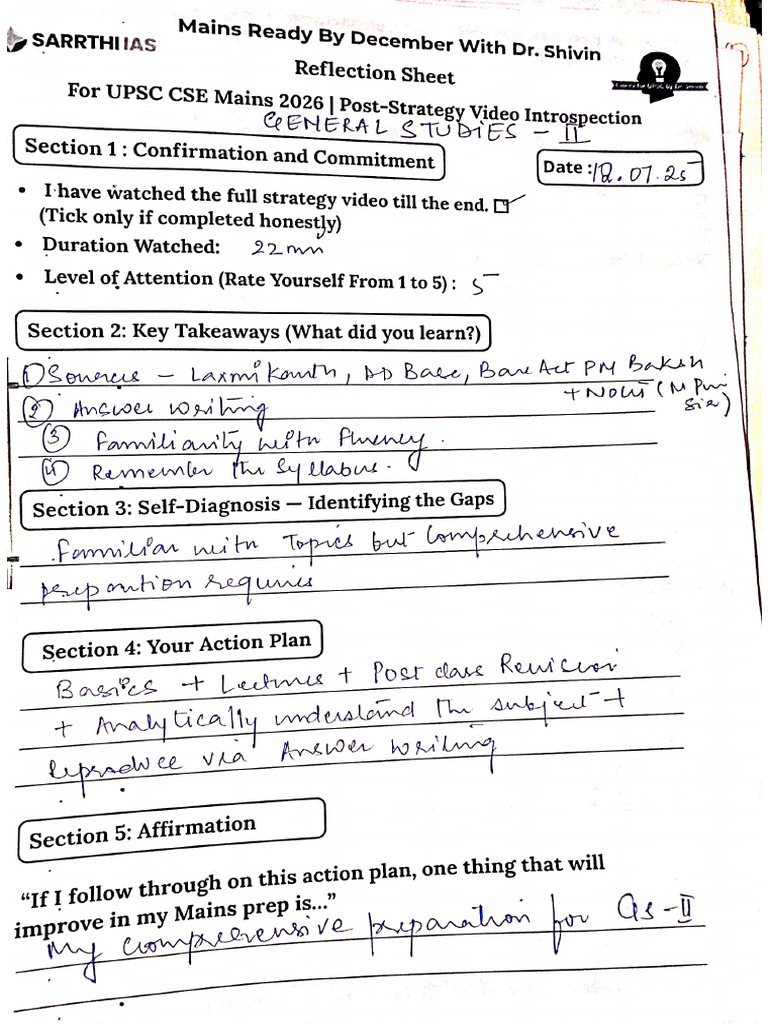 SARRTHI IAS
Mains Ready By December With Dr. Shivin
Reflection Sheet
For UPSC CSE Mains 2026 | Post-Strategy Video Introspection
GENERAL STUDIES - II
Section 1 : Confirmation and Commitment
Date : 18.07.25
• I have watched the full strategy video till the end. ☑
(Tick only if completed honestly)
• Duration Watched: 22 min
• Level of Attention (Rate Yourself From 1 to 5) : 5
Section 2: Key Takeaways (What did you learn?)
① Sources - Laxmikanth, DD Basu, Bare Act PM Baksh
+ Notes (M Puri
Sir)
② Answer writing
③ Familiarity with fluency.
④ Remember the Syllabus.
Section 3: Self-Diagnosis — Identifying the Gaps
Familiar with Topics but Comprehensive
Section 4: Your Action Plan
Basics + Lectures + Post class Revision
+ Analytically understand the subject +
Reproduce via Answer writing
Section 5: Affirmation
“If I follow through on this action plan, one thing that will
improve in my Mains prep is...”
My comprehensive preparation for GS-II